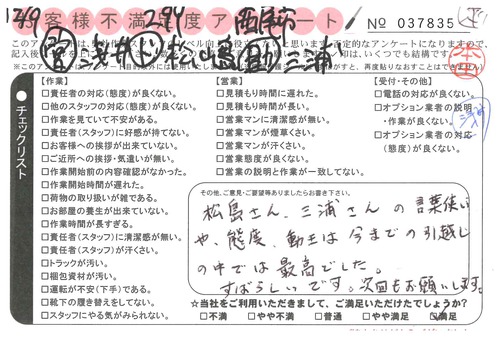 客様不満足度アンケート
No 037835
チェックリスト
【作業】
□責任者の対応(態度)が良くない。
□他のスタッフの対応(態度)が良くない。
□作業を見ていて不安がある。
□責任者(スタッフ)に好感が持てない。
□お客様への挨拶が出来ていない。
□ご近所への挨拶・気遣いが無い。
□作業開始前の内容確認がなかった。
□作業開始時間が遅れた。
□荷物の取り扱いが雑である。
□お部屋の養生が出来ていない。
□作業時間が長すぎる。
□責任者(スタッフ)に清潔感が無い。
□責任者(スタッフ)が汗くさい。
□トラックが汚い。
□梱包資材が汚い。
□運転が不安(下手)である。
□靴下の履き替えをしてない。
□スタッフにやる気がみられない。
【営業】
□見積もり時間に遅れた。
□見積もり時間が長い。
□営業マンに清潔感が無い。
□営業マンが煙草くさい。
□営業マンが汗くさい。
□営業態度が良くない。
□営業の説明と作業が一致してない。
【受付・その他】
□電話の対応が良くない。
□オプション業者の説明
・作業が良くない。
□オプション業者の対応
(態度)が良くない。
その他、ご意見・ご要望等ありましたらお書き下さい。
松島さん、三浦さんの言葉使い
や、態度、動きは今までの引越し
の中では最高でした。
すばらしいです。次回もお願いします。
☆当社をご利用いただきまして、ご満足いただけたでしょうか?
□不満 □やや不満 □普通 □やや満足 ☑満足